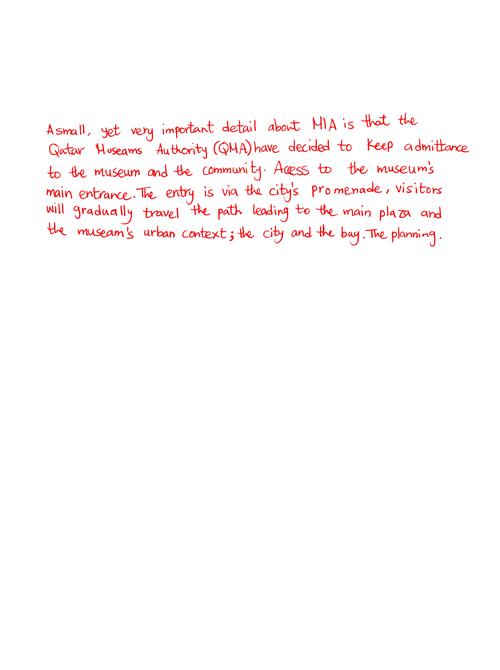 A small, yet very important detail about MIA is that the
Qatar Museams Authority (QMA) have decided to keep admittance
to the museum and the community. Access to the museum's
main entrance. The entry is via the city's promenade, visitors
will gradually travel the path leading to the main plaza and
the museam's urban context; the city and the bay. The planning.